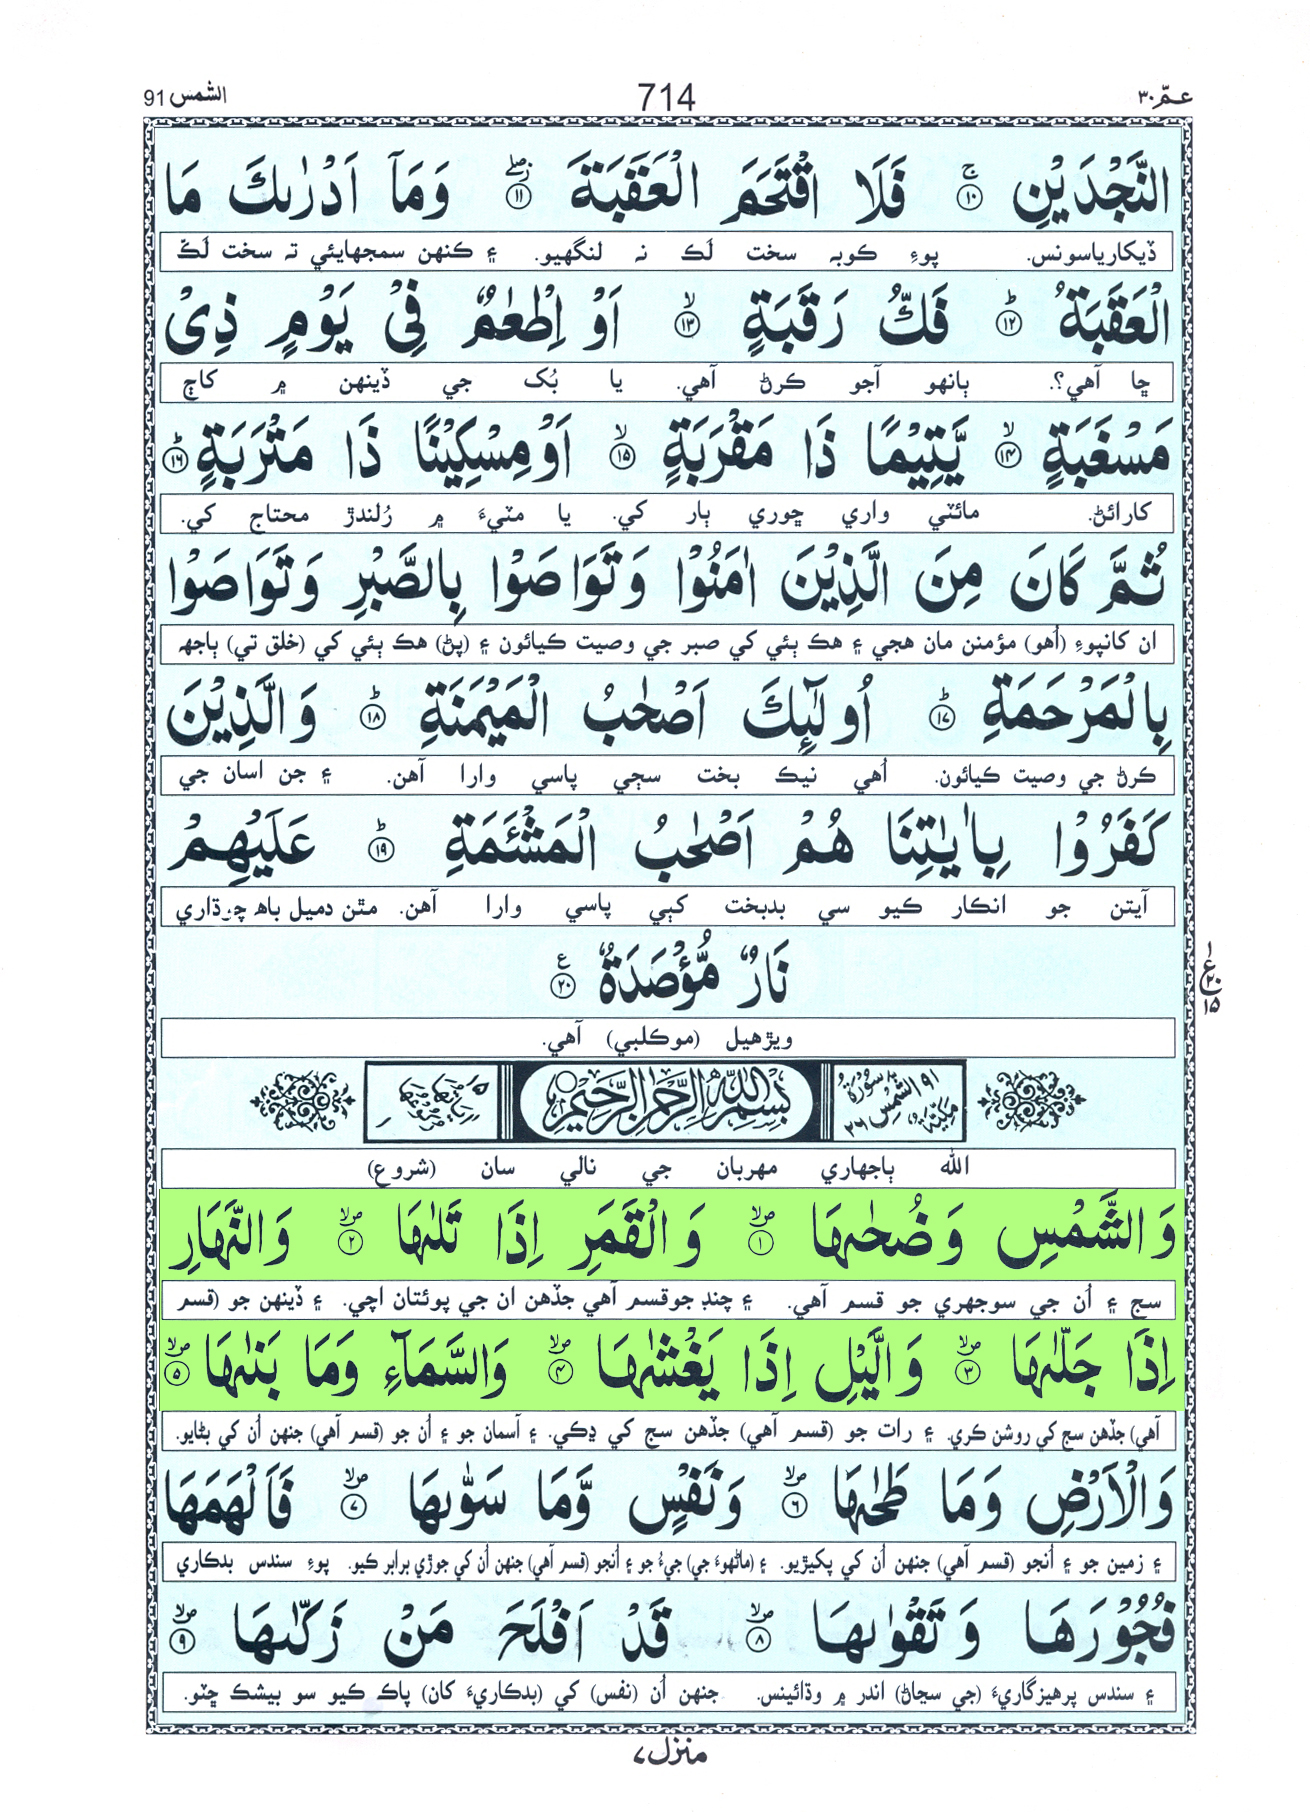 الشمس 91 714 عـمّ ٣٠
النَّجْدَيْنِ ۚ ﴿١٠﴾ فَلَا اقْتَحَمَ الْعَقَبَةَ ﴿١١﴾ وَمَاۤ اَدْرٰىكَ مَا
ڏيکارياسونس. پوءِ ڪوبہ سخت لَڪ نہ لنگهيو. ۽ ڪنهن سمجهايئي تہ سخت لَڪ
الْعَقَبَةُ ؕ ﴿١٢﴾ فَكُّ رَقَبَةٍ ۙ ﴿١٣﴾ اَوْ اِطْعٰمٌ فِیْ يَوْمٍ ذِیْ
ڇا آهي؟. ٻانهو آجو ڪرڻ آهي. يا بُک جي ڏينهن ۾ کاڄ
مَسْغَبَةٍ ۙ ﴿١٤﴾ يَّتِيْمًا ذَا مَقْرَبَةٍ ۙ ﴿١٥﴾ اَوْ مِسْكِيْنًا ذَا مَتْرَبَةٍ ؕ ﴿١٦﴾
کارائڻ. مائٽي واري ڇوري ٻار کي. يا مٽيءَ ۾ رُلندڙ محتاج کي.
ثُمَّ كَانَ مِنَ الَّذِيْنَ اٰمَنُوْا وَتَوَاصَوْا بِالصَّبْرِ وَتَوَاصَوْا
ان کانپوءِ (اُهو) مؤمنن مان هجي ۽ هڪ ٻئي کي صبر جي وصيت ڪيائون ۽ (پڻ) هڪ ٻئي کي (خلق تي) ٻاجهہ
بِالْمَرْحَمَةِ ؕ ﴿١٧﴾ اُولٰٓئِكَ اَصْحٰبُ الْمَيْمَنَةِ ؕ ﴿١٨﴾ وَالَّذِيْنَ
ڪرڻ جي وصيت ڪيائون. اُهي نيڪ بخت سڄي پاسي وارا آهن. ۽ جن اسان جي
كَفَرُوْا بِاٰيٰتِنَا هُمْ اَصْحٰبُ الْمَشْـَٔمَةِ ؕ ﴿١٩﴾ عَلَيْهِمْ
آيتن جو انڪار ڪيو سي بدبخت کٻي پاسي وارا آهن. مٿن دميل باھ چوڌاري
نَارٌ مُّؤْصَدَةٌ ﴿٢٠﴾ ع
ويڙهيل (موڪلبي) آهي.
٩١ سورة الشمس مكية ٢٦ بسم الله الرحمن الرحيم اٰياتها ١٥ ركوعها ١
الله ٻاجهاري مهربان جي نالي سان (شروع)
وَالشَّمْسِ وَضُحٰىهَا ۪ۙ ﴿١﴾ وَالْقَمَرِ اِذَا تَلٰىهَا ۪ۙ ﴿٢﴾ وَالنَّهَارِ
سج ۽ اُن جي سوجهري جو قسم آهي. ۽ چنڊ جوقسم آهي جڏهن ان جي پوئتان اچي. ۽ ڏينهن جو (قسم
اِذَا جَلّٰىهَا ۪ۙ ﴿٣﴾ وَالَّيْلِ اِذَا يَغْشٰىهَا ۪ۙ ﴿٤﴾ وَالسَّمَآءِ وَمَا بَنٰىهَا ۪ۙ ﴿٥﴾
آهي) جڏهن سج کي روشن ڪري. ۽ رات جو (قسم آهي) جڏهن سج کي ڍڪي. ۽ آسمان جو ۽ اُن جو (قسم آهي) جنهن اُن کي بڻايو.
وَالْاَرْضِ وَمَا طَحٰىهَا ۪ۙ ﴿٦﴾ وَنَفْسٍ وَّمَا سَوّٰىهَا ۪ۙ ﴿٧﴾ فَاَلْهَمَهَا
۽ زمين جو ۽ اُنجو (قسم آهي) جنهن اُن کي پکيڙيو. ۽ (ماڻهوءَ جي) جيءُ جو ۽ اُنجو (قسم آهي) جنهن اُن کي جوڙي برابر ڪيو. پوءِ سندس بدڪاري
فُجُوْرَهَا وَتَقْوٰىهَا ۪ۙ ﴿٨﴾ قَدْ اَفْلَحَ مَنْ زَكّٰىهَا ۪ۙ ﴿٩﴾
۽ سندس پرهيزگاريءَ (جي سڃاڻ) اندر ۾ وڌائينس. جنهن اُن (نفس) کي (بدڪاريءَ کان) پاڪ ڪيو سو بيشڪ ڇٽو.
منزل ٧